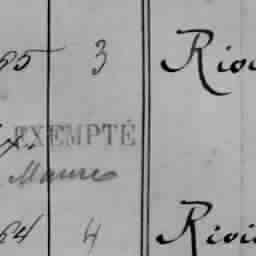 65 3 Rio
EXEMPTÉ
Maurice
64 4 Rivi